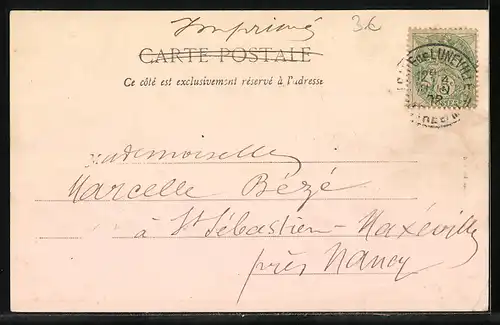 Imprimé
3€
CARTE POSTALE
Ce côté est exclusivement réservé à l'adresse
LUNEVILLE
Mademoiselle
Marcelle Bézé
à St Sébastien-Maxéville
près Nancy